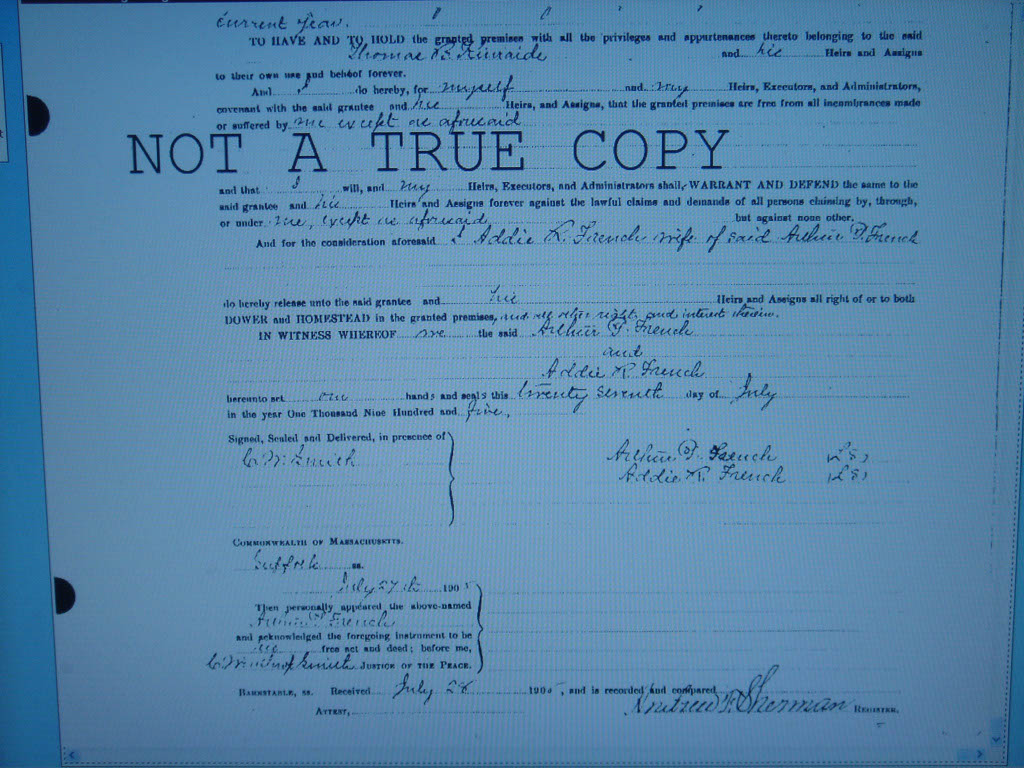 current year.
TO HAVE AND TO HOLD the granted premises with all the privileges and appurtenances thereto belonging to the said
Thomas B. Kinraide and his Heirs and Assigns
to their own use and behoof forever.
And I do hereby, for myself and my Heirs, Executors, and Administrators,
covenant with the said grantee and his Heirs, and Assigns, that the granted premises are free from all incumbrances made
or suffered by me except as aforesaid
NOT A TRUE COPY
and that I will, and my Heirs, Executors, and Administrators shall, WARRANT AND DEFEND the same to the
said grantee and his Heirs and Assigns forever against the lawful claims and demands of all persons claiming by, through,
or under me, except as aforesaid, but against none other.
And for the consideration aforesaid I Addie R. French wife of said Arthur P. French
do hereby release unto the said grantee and his Heirs and Assigns all right of or to both
DOWER and HOMESTEAD in the granted premises, and all other right, and interest therein.
IN WITNESS WHEREOF we the said Arthur French
and
Addie R. French
hereunto set our hands and seals this twenty seventh day of July
in the year One Thousand Nine Hundred and five.
Signed, Sealed and Delivered, in presence of
C. W. Smith
Arthur French (LS)
Addie R. French (LS)
COMMONWEALTH OF MASSACHUSETTS.
Suffolk ss.
July 27th 1905
Then personally appeared the above-named
Arthur French
and acknowledged the foregoing instrument to be
his free act and deed; before me,
Smith JUSTICE OF THE PEACE.
BARNSTABLE, ss. Received July 28 1905, and is recorded and compared
ATTEST, Andrew F. Sherman REGISTER.